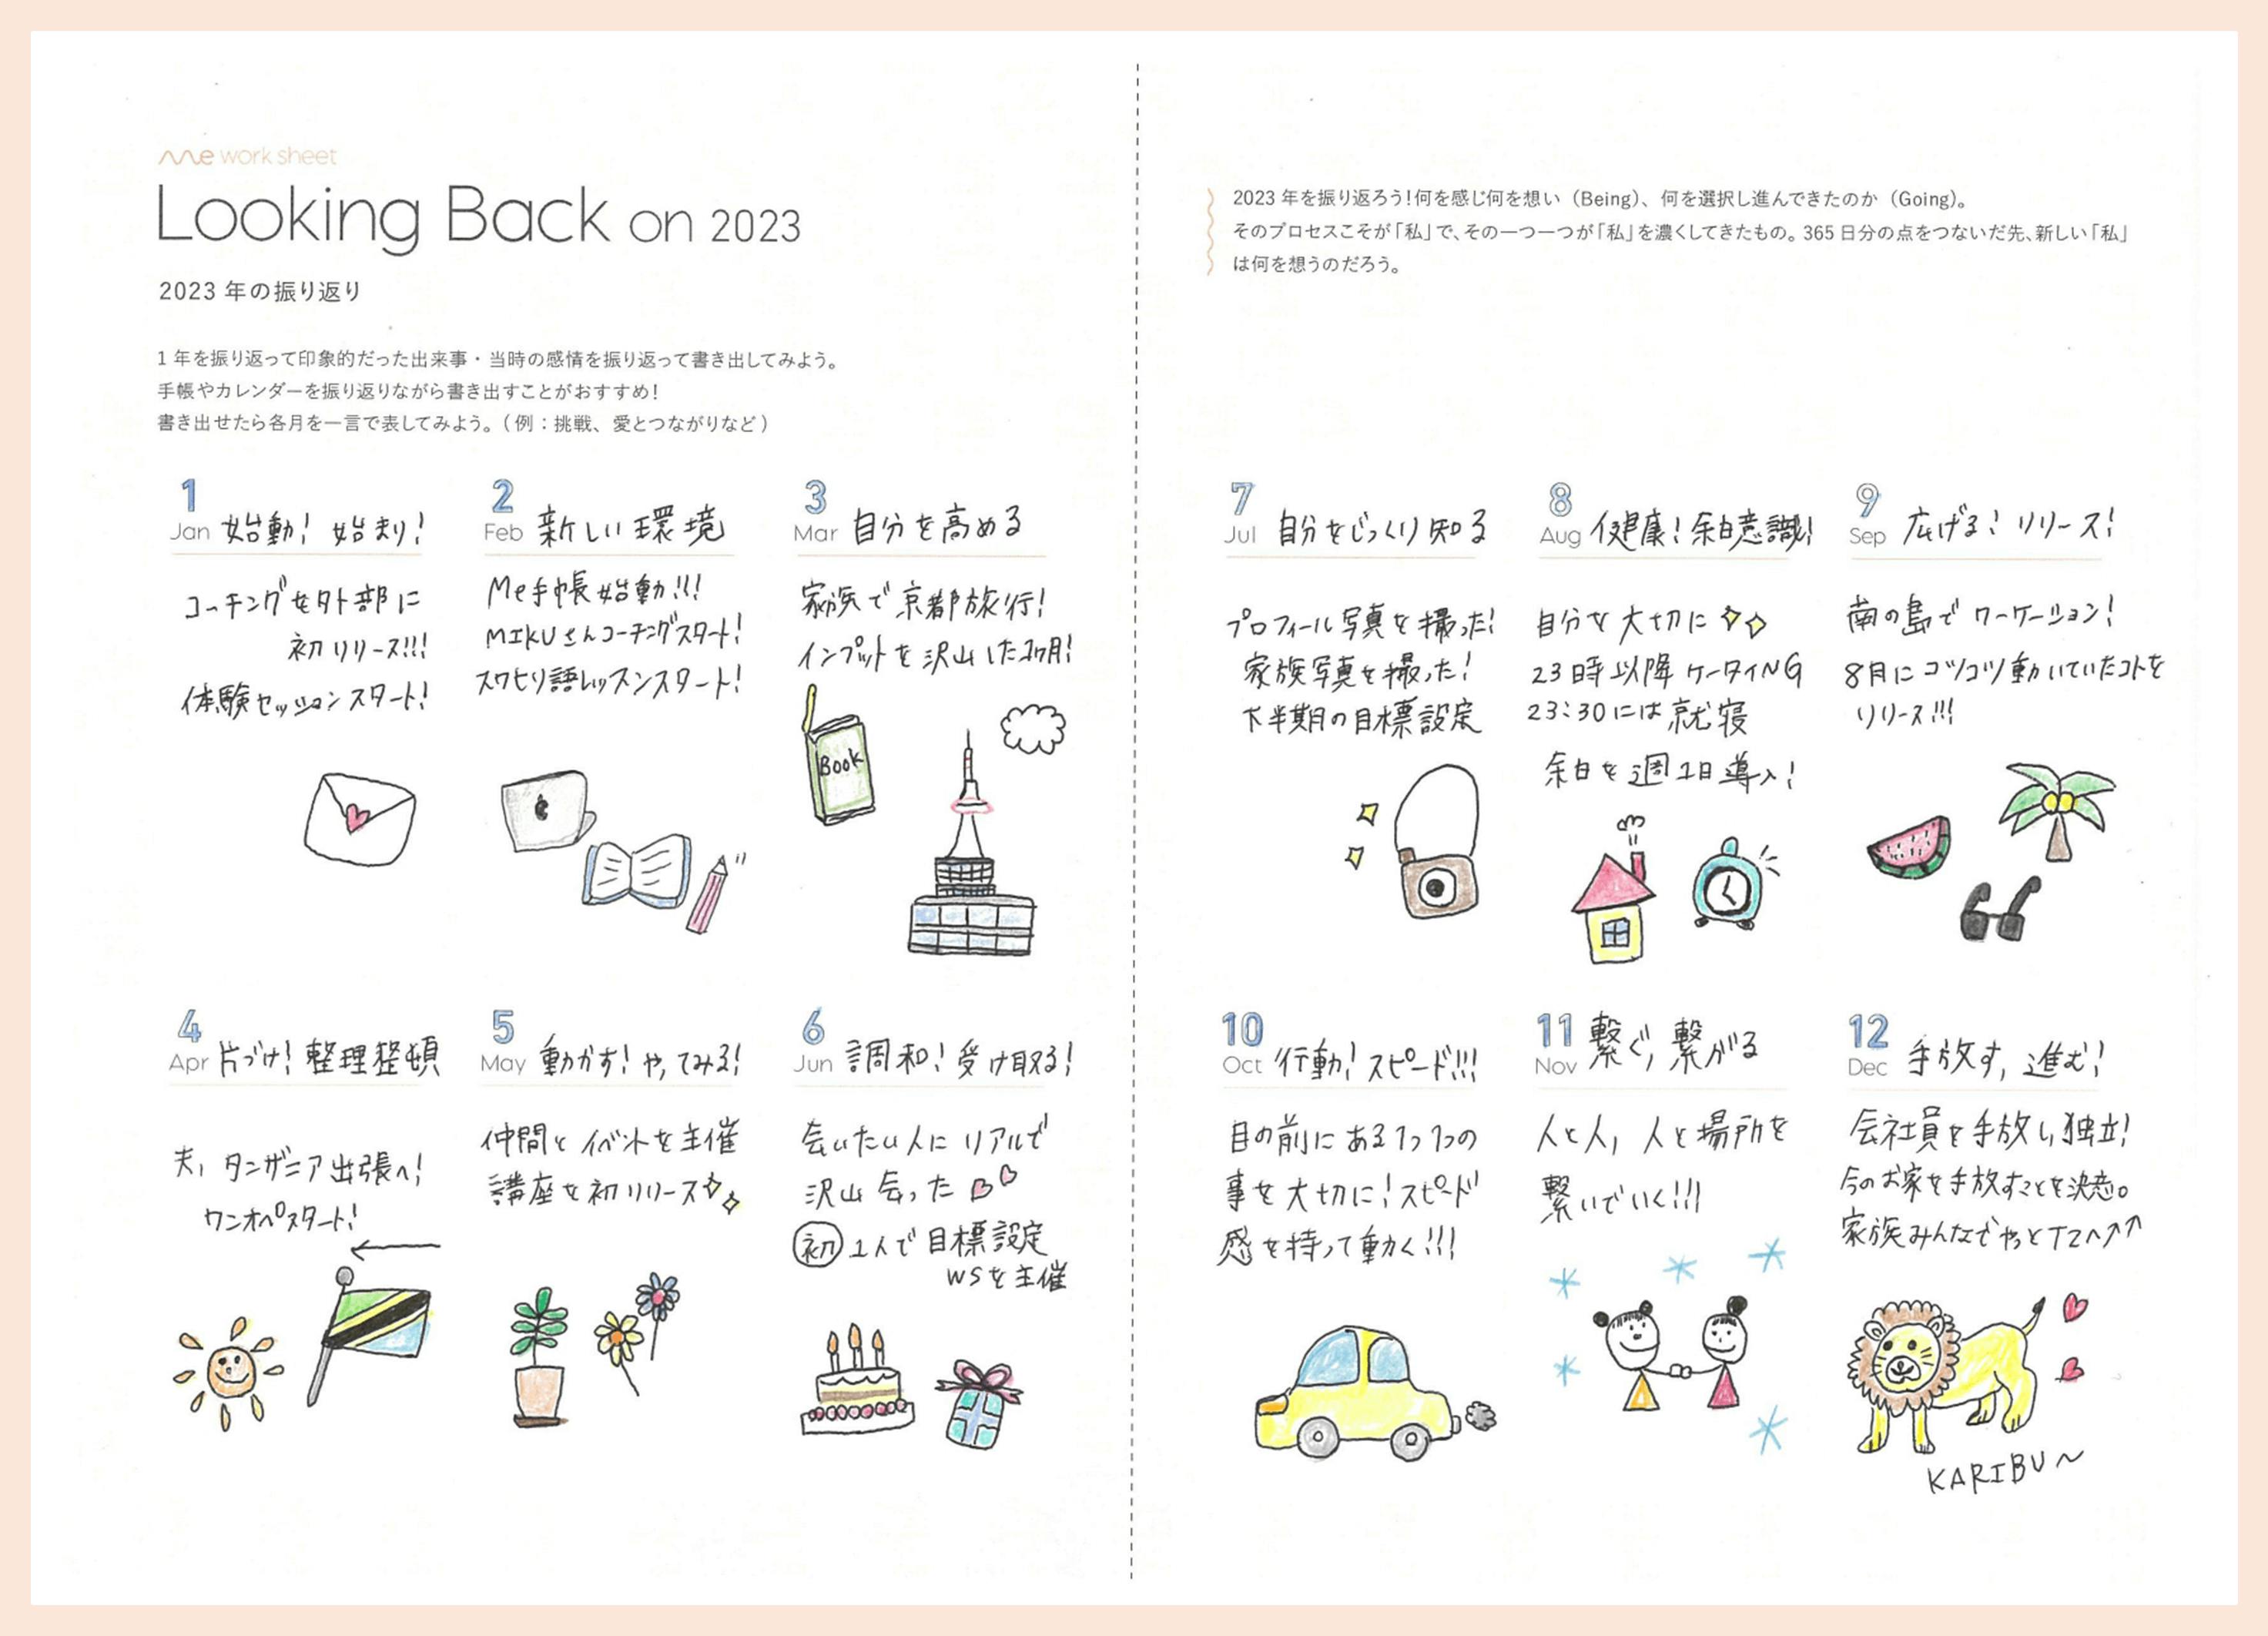 me work sheet
Looking Back on 2023
2023 年の振り返り
1 年を振り返って印象的だった出来事・当時の感情を振り返って書き出してみよう。
手帳やカレンダーを振り返りながら書き出すことがおすすめ！
書き出せたら各月を一言で表してみよう。（例：挑戦、愛とつながりなど）
1
Jan 始動! 始まり!
コーチングを外部に
初リリース!!!
体験セッションスタート!
2
Feb 新しい環境
Me手帳始動!!!
MIKUさんコーチングスタート!
スワヒリ語レッスンスタート!
3
Mar 自分を高める
家族で京都旅行!
インプットを沢山した1ヶ月!
Book
4
Apr 片づけ! 整理整頓
夫、タンザニア出張へ!
ワンオペスタート!
5
May 動かす! やってみる!
仲間とイベントを主催
講座を初リリース
6
Jun 調和! 受け取る!
会いたい人にリアルで
沢山会った
初 1人で目標設定
WSを主催
2023 年を振り返ろう！何を感じ何を想い（Being）、何を選択し進んできたのか（Going）。
そのプロセスこそが「私」で、その一つ一つが「私」を濃くしてきたもの。365 日分の点をつないだ先、新しい「私」
は何を想うのだろう。
7
Jul 自分をじっくり知る
プロフィール写真を撮った!
家族写真を撮った!
下半期の目標設定
8
Aug 健康! 余白意識!
自分を大切に
23時以降ケータイNG
23:30には就寝
余白を週1日導入!
9
Sep 広げる! リリース!
南の島でワーケーション!
8月にコツコツ動いていたコトを
リリース!!!
10
Oct 行動! スピード!!!
目の前にある1つ1つの
事を大切に! スピード
感を持って動く!!!
11
Nov 繋ぐ, 繋がる
人と人, 人と場所を
繋いでいく!!!
12
Dec 手放す, 進む!
会社員を手放し独立!
今のお家を手放すことを決意。
家族みんなでやっとTZへ↗↗
KARIBU〜